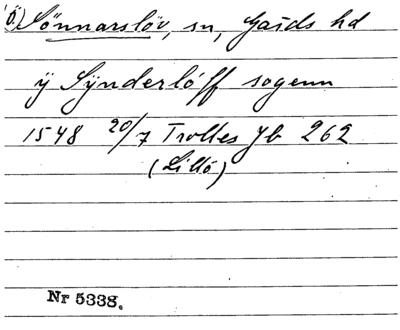 (Ö.) Sönnarslöv, sn, Gärds hd
ÿ Sÿnderlöff sogenn
1548 20/7 Trolles Jb 262
(Lillö)
Nr 5338.